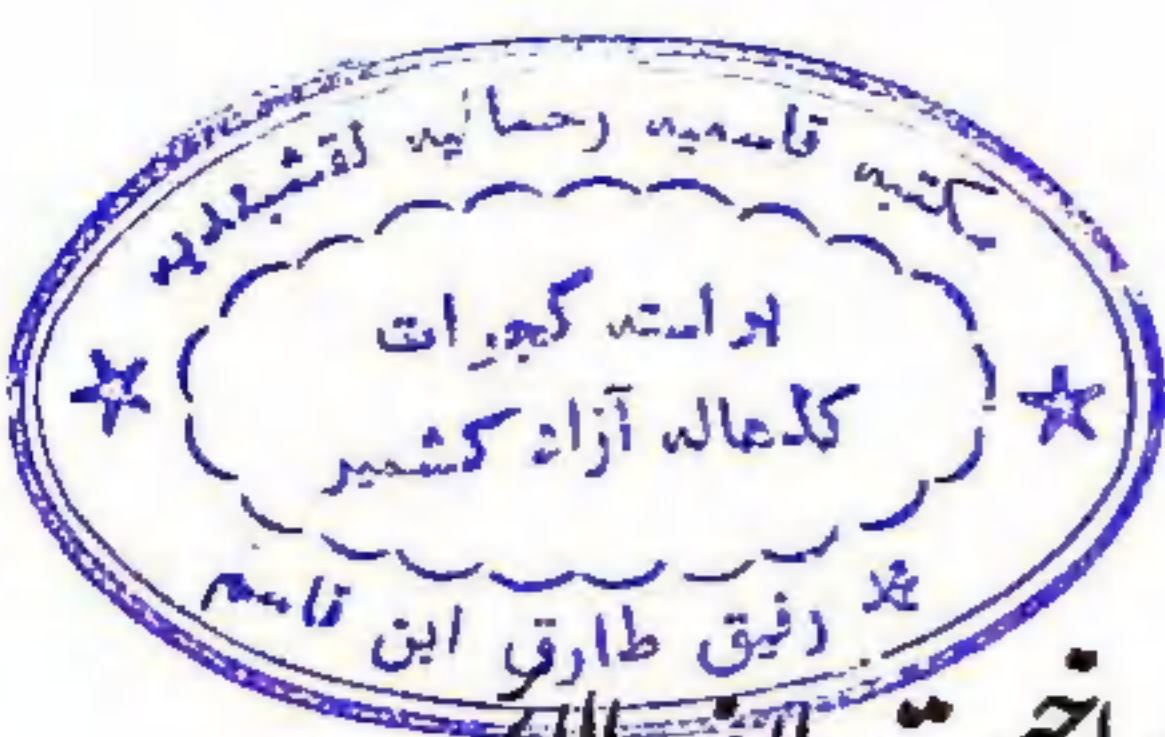 مکتبہ قاسمیہ رحمانیہ نقشبندیہ
براستہ گجرات
کلدعالہ آزاد کشمیر
محمد رفیق طارق ابن قاسم